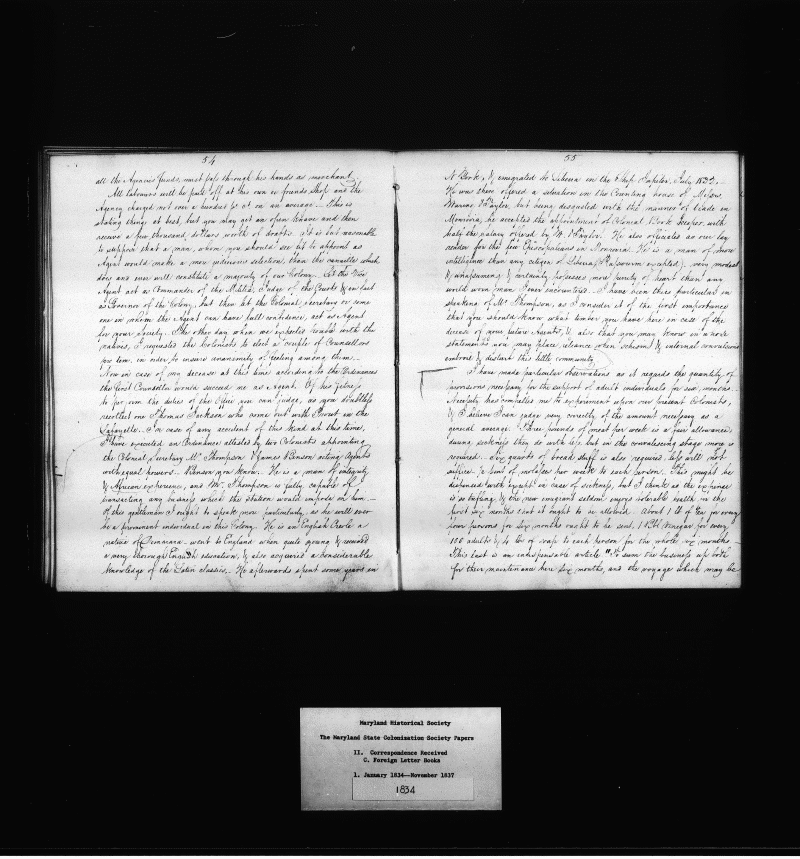 54
all the Agencies funds, must pass through his hands as merchant
All labourers will be paid off at his own or friends shop and the
Agency charged not over a hundred pr ct on an average. This is
stating things at best, but you may get an open knave and then
receive a few thousand dollars worth of drafts. It is but reasonable
to suppose that a man, whom you should see fit to appoint as
Agent would make a more judicious selection, than the canaille which
does and ever will constitute a majority of our Colony. Let the Vice
Agent act as Commander of the Militia, Judge of the Courts & in fact
as Governor of the Colony, but then let the Colonial secretary or some
one in whom the Agent can have full confidence, act as Agent
for your society. The other day when we expected trouble with the
natives, I requested the Colonists to elect a couple of Counsellors
pro tem, in order to insure unanimity of feeling among them.
Now in case of my decease at this time according to the Ordinances
the first Counsellor would succeed me as Agent. Of his fitness
to perform the duties of the office you can judge, as you doubtless
recollect one Thomas Jackson who came out with Prout in the
Lafayette. In case of any accident of this kind at this time,
I have executed an Ordinance attested by two Colonists appointing
the Colonial Secretary Mr Thompson & James Benson acting Agents
with equal powers. Benson you know. He is a man of integrity
& African experience, and Mr. Thompson is fully capable of
transacting any business which the station would impose on him
Of this gentleman I ought to speak more particularly, as he will ever
be a prominent individual in this Colony. He is an English Creole a
native of Demarara went to England when quite young & received
a very thorough English education, & also acquired a considerable
knowledge of the Latin classics. He afterwards spent some years in
55
N York, & emigrated to Liberia in the Ship Jupiter, July 1832.
He was there offered a selection in the Counting house of Messrs
but being disgusted with the manner of trade in
Monrovia, he accepted the appointment of Colonial Book keeper, with
half the salary offered by He also officiates as our lay
reader for the few Episcopalians in Monrovia. He is a man of more
intelligence than any citizen of Liberia, (Russwurm excepted), very modest
& unassuming & certainly possesses more purity of heart than any
world worn man I ever encountered. I have been thus particular in
speaking of Mr Thompson, as I consider it of the first importance
that you should know what timber you have here in case of the
decease of your future Agents, & also that you may know in whose
statements you may place reliance when schisms & internal convulsions
embroil & distract this little community
I have made particular observations as it regards the quantity of
provisions necessary for the support of adult individuals for six months.
Necessity has compelled me to experiment upon our present Colonists,
& I believe I can judge very correctly of the amount necessary as a
general average. Three pounds of meat per week is a fair allowance,
during sickness they do with less, but in the convalescing stage more is
required. Six quarts of bread stuff is also required, less will not
suffice. ½ pint of molasses per week to each person. This might be
dispensed with except in case of sickness, but I think as the expense
is so trifling & the new emigrant seldom enjoys tolerable health in the
first six months that it ought to be allowed. About 1 lb of Tea for every
four persons for six months ought to be sent, 1 Bbl Vinegar for every
100 adults & 4 lbs of soap to each person for the whole six months.
This last is an indispensable article "To sum the business up both
for their maintenance here six months, and the voyage which may be
Maryland Historical Society
The Maryland State Colonization Society Papers
II. Correspondence Received
C. Foreign Letter Books
1. January 1834--November 1837
1834